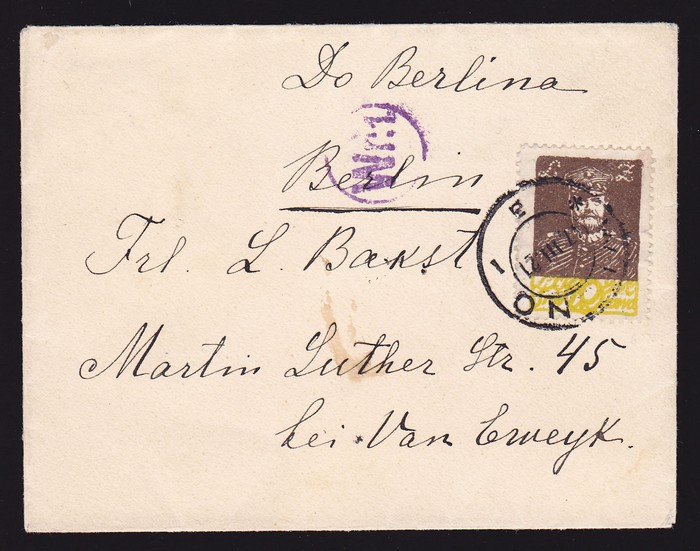 Do Berlina
Wr:1
Berlin
Frl. L. Bakst
Martin Luther Str. 45
bei Van Eweyk.
17 III 2